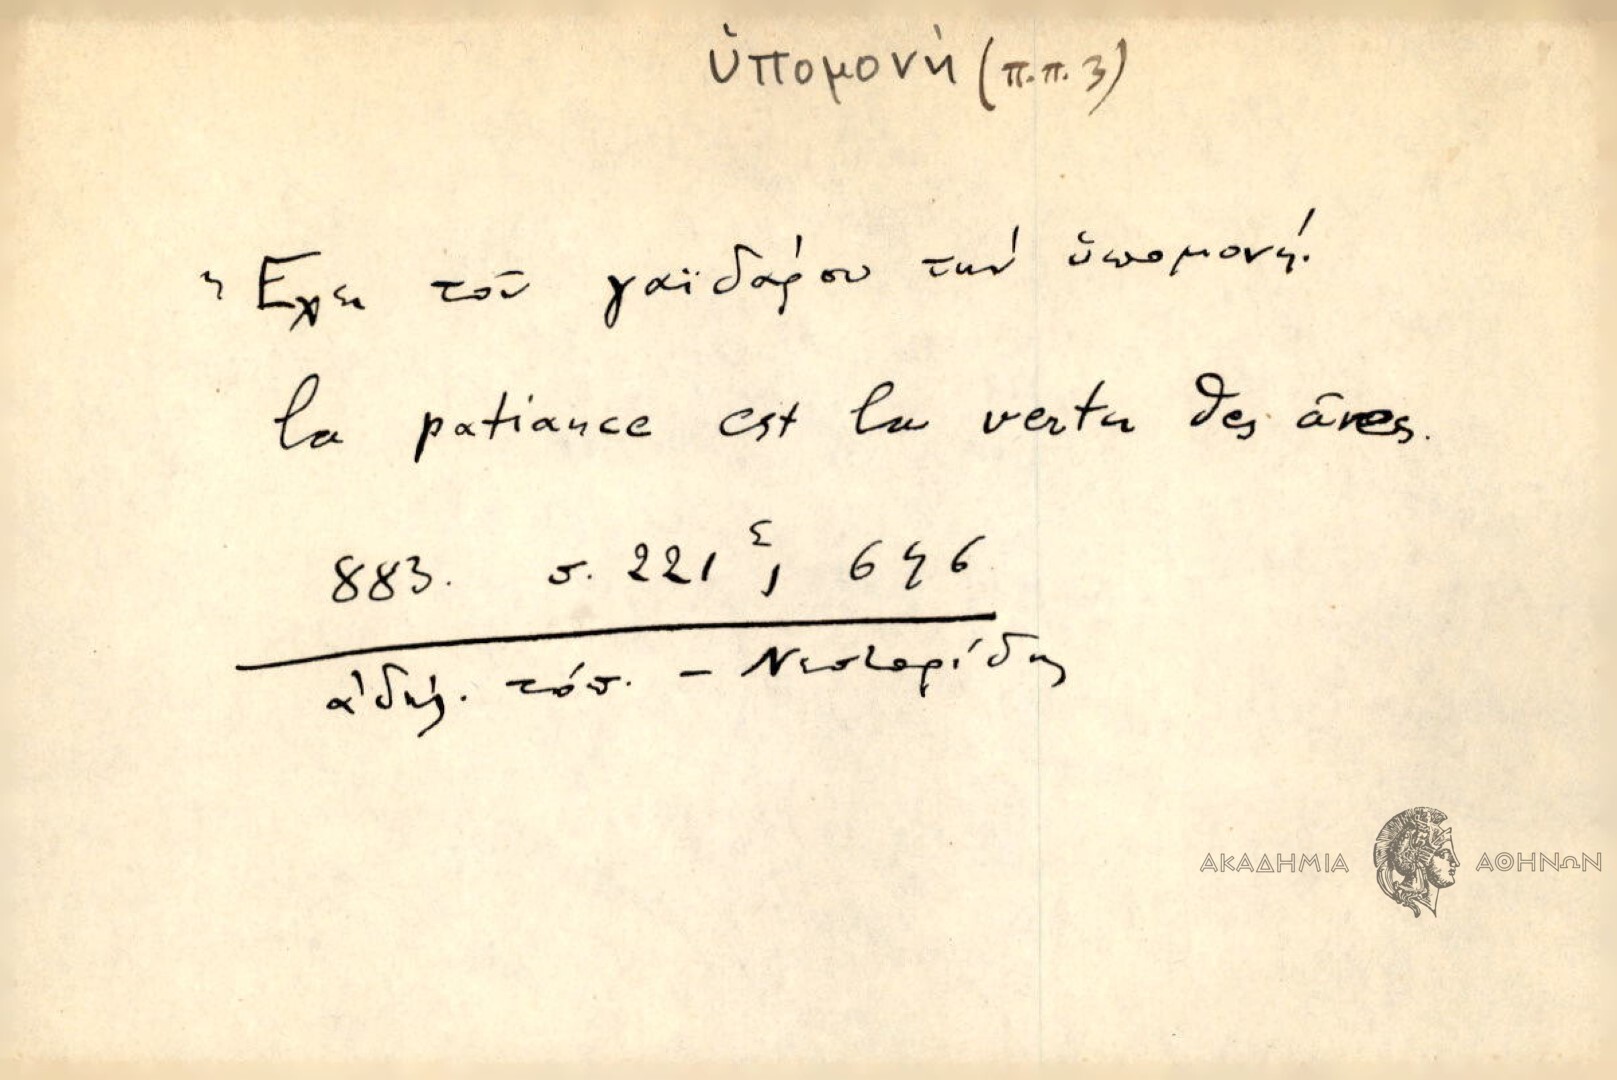 ὑπομονή (π.π. 3)
Ἔχει τοῦ γαϊδάρου τήν ὑπομονή.
la patiance est la vertu des ânes.
883. σ. 221 ς, 646
ἀδήλ. τόπ. – Νεστορίδης
ΑΚΑΔΗΜΙΑ ΑΘΗΝΩΝ